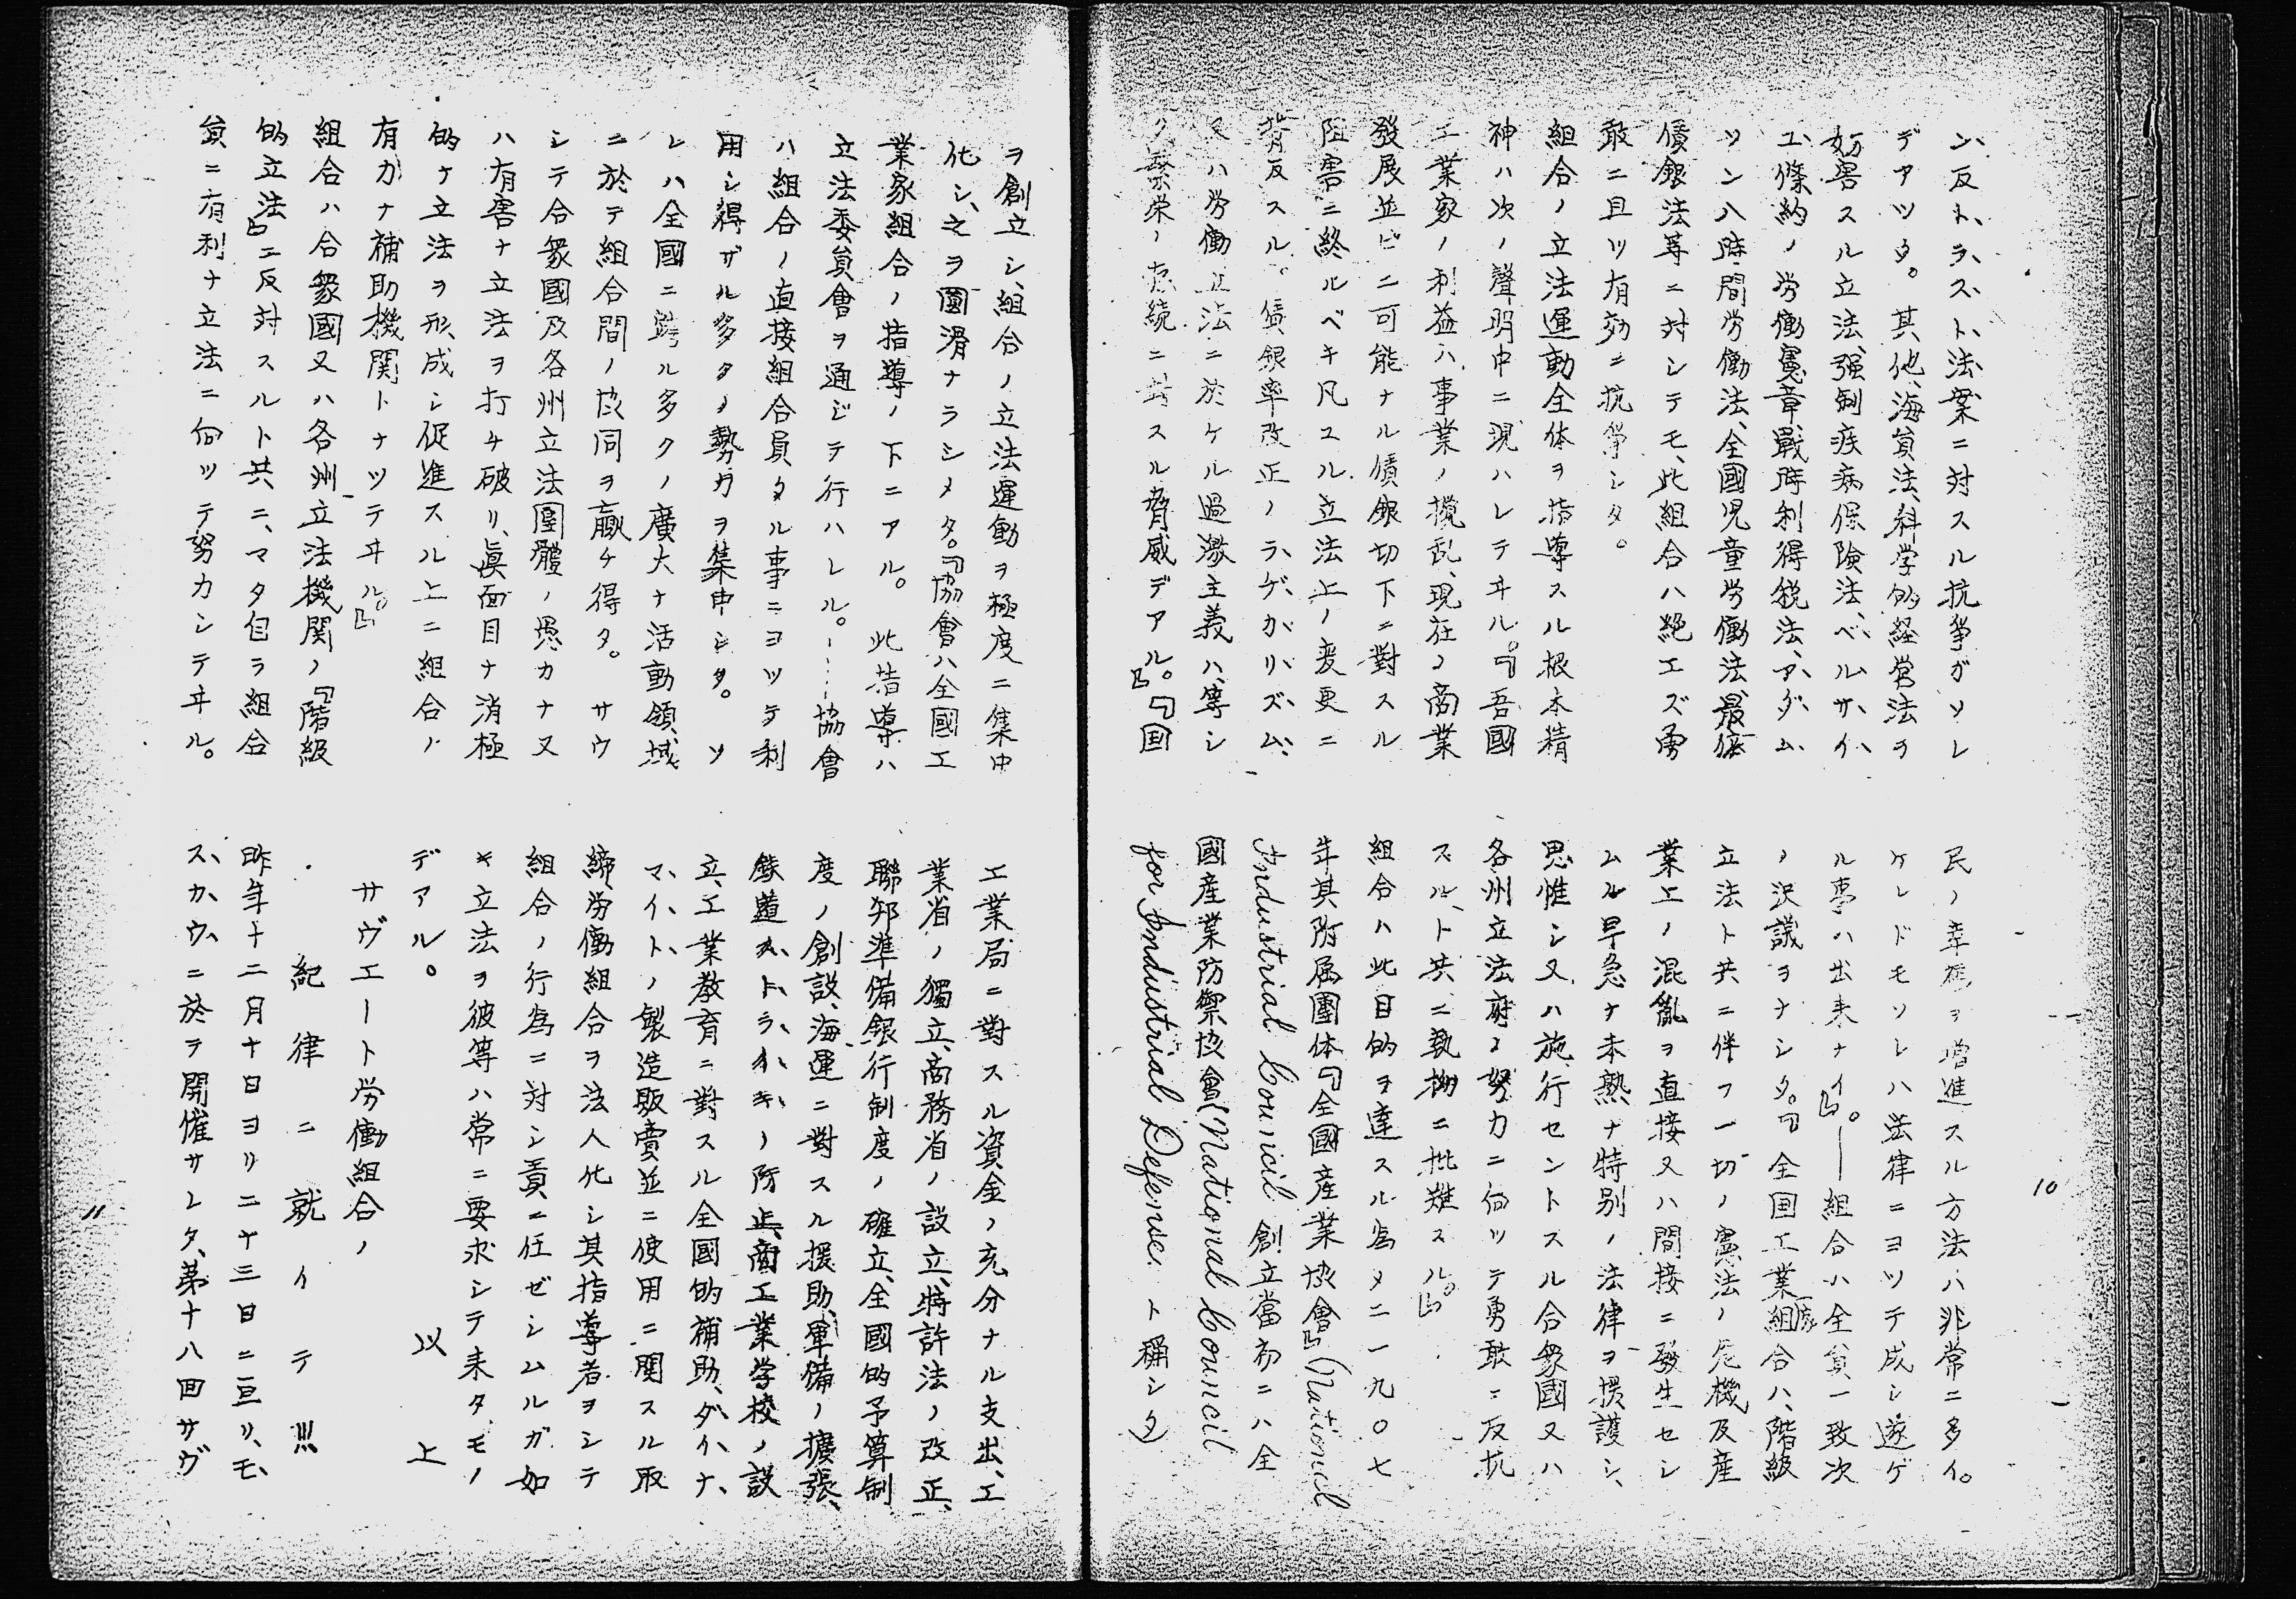 ン、反ト、ラ、ス、ト、法案ニ対スル抗争ガソレ
デアツタ。其他、海員法、科学的経営法ヲ
妨害スル立法、强制疾病保険法、ベ、ル、サ、イ、
ユ、條約ノ労働憲章、戰時利得税法、ア、ダ、ム、
ソン八時間労働法、全國児童労働法、最低
賃銀法等ニ対シテモ、此組合ハ絶エズ勇
敢ニ且ツ有効ニ抗争シタ。
組合ノ立法運動全体ヲ指導スル根本精
神ハ次ノ聲明中ニ現ハレテヰル。『吾國
工業家ノ利益ハ、事業ノ攪乱、現在ノ商業
發展並ビニ可能ナル賃銀切下ニ對スル
阻害ニ終ルベキ凡ユル立法上ノ変更ニ
背反スル。賃銀率改正ノラ、ヂ、カ、リ、ズ、ム、
又ハ労働立法ニ於ケル過激主義ハ、等シ
ク繁栄ノ持続ニ對スル脅威デアル。』『国
民ノ幸福ヲ増進スル方法ハ非常ニ多イ。
ケレドモソレハ法律ニヨツテ成シ遂ゲ
ル事ハ出来ナイ。』――組合ハ全員一致次
ノ決議ヲナシタ。『全国工業家組合ハ、階級
立法ト共ニ伴フ一切ノ憲法ノ危機及産
業上ノ混亂ヲ直接又ハ間接ニ發生セシ
ムル早急ナ未熟ナ特別ノ法律ヲ援護シ、
思惟シ又ハ施行セントスル合衆國又ハ
各州立法府ノ努力ニ向ツテ勇敢ニ反抗
スルト共ニ執拗ニ批難スル。』
組合ハ此目的ヲ達スル為メニ一九〇七
年其附属團体『全國産業協會』(National
Industrial Council 創立當初ニハ全
國産業防禦協會(National Council
for Industrial Defense. ト稱シタ)
10
ヲ創立シ、組合ノ立法運動ヲ極度ニ集中
化シ、之ヲ圓滑ナラシメタ。『協會ハ全國工
業家組合ノ指導ノ下ニアル。此指導ハ
立法委員會ヲ通ジテ行ハレル。……協會
ハ組合ノ直接組合員タル事ニヨツテ利
用シ得ザル多クノ勢力ヲ集中シタ。ソ
レハ全國ニ跨ル多クノ廣大ナ活動領域
ニ於テ組合間ノ協同ヲ贏チ得タ。サウ
シテ合衆國及各州立法團體ノ愚カナ又
ハ有害ナ立法ヲ打チ破リ、眞面目ナ消極
的ナ立法ヲ形成シ促進スル上ニ組合ノ
有力ナ補助機関トナツテヰル。』
組合ハ合衆國又ハ各州立法機関ノ『階級
的立法』ニ反対スルト共ニ、マタ自ラ組合
員ニ有利ナ立法ニ向ツテ努力シテヰル。
工業局ニ對スル資金ノ充分ナル支出、工
業省ノ獨立、商務省ノ設立、特許法ノ改正、
聯邦準備銀行制度ノ確立、全國的予算制
度ノ創設、海運ニ對スル援助、軍備ノ擴張、
鉄道ス、ト、ラ、イ、キ、ノ防止、商工業学校ノ設
立、工業教育ニ對スル全國的補助、ダ、イ、ナ、
マ、イ、ト、ノ製造販賣並ニ使用ニ関スル取
締、労働組合ヲ法人化シ其指導者ヲシテ
組合ノ行為ニ対シ責ニ任ゼシムルガ如
キ立法ヲ彼等ハ常ニ要求シテ来タモノ
デアル。
以上
サヴエート労働組合ノ
紀律ニ就イテ!!!
昨年十二月十日ヨリ二十三日ニ亘リ、モ、
ス、カ、ウ、ニ於テ開催サレタ、第十八回サヴ
11